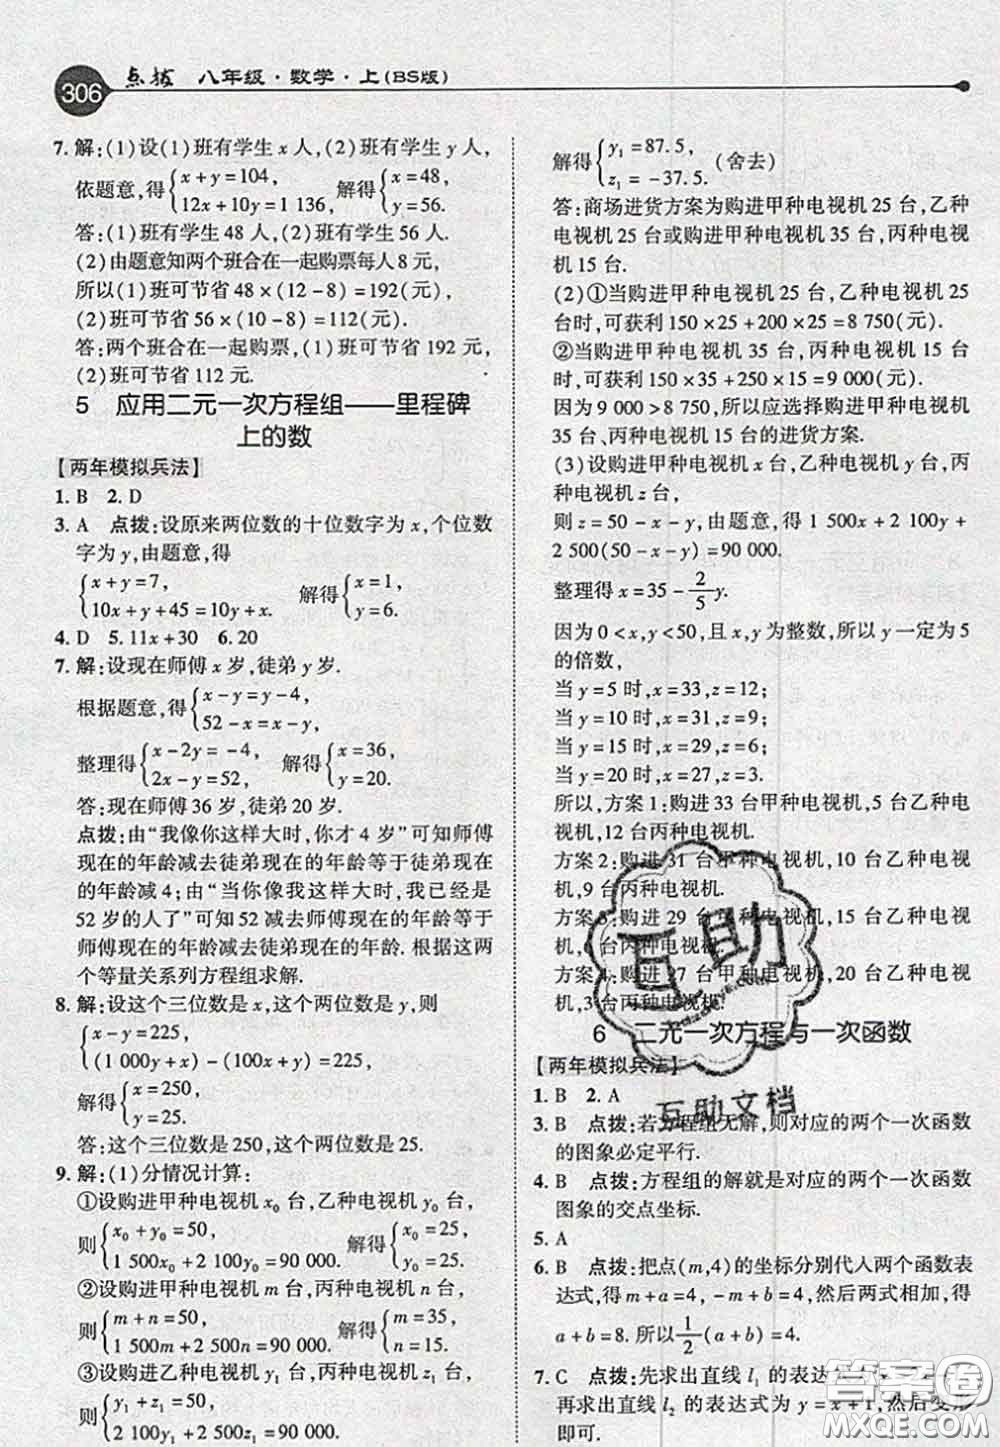 306 点拨 八年级·数学·上(BS版)
7.解:(1)设(1)班有学生 x 人,(2)班有学生 y 人,
依题意,得{x+y=104, 12x+10y=1 136, 解得{x=48, y=56.
答:(1)班有学生 48 人,(2)班有学生 56 人.
(2)由题意知两个班合在一起购票每人 8 元,
所以(1)班可节省 48×(12-8)=192(元),
(2)班可节省 56×(10-8)=112(元).
答:两个班合在一起购票,(1)班可节省 192 元,
(2)班可节省 112 元.
5 应用二元一次方程组——里程碑
上的数
【两年模拟兵法】
1. B 2. D
3. A 点拨:设原来两位数的十位数字为 x,个位数
字为 y,由题意,得
{x+y=7, 10x+y+45=10y+x. 解得{x=1, y=6.
4. D 5. 11x+30 6. 20
7.解:设现在师傅 x 岁,徒弟 y 岁.
根据题意,得{x-y=y-4, 52-x=x-y.
整理得{x-2y=-4, 2x-y=52, 解得{x=36, y=20.
答:现在师傅 36 岁,徒弟 20 岁.
点拨:由“我像你这样大时,你才 4 岁”可知师傅
现在的年龄减去徒弟现在的年龄等于徒弟现在
的年龄减 4;由“当你像我这样大时,我已经是
52 岁的人了”可知 52 减去师傅现在的年龄等于
师傅现在的年龄减去徒弟现在的年龄. 根据这两
个等量关系列方程组求解.
8.解:设这个三位数是 x,这个两位数是 y,则
{x-y=225, (1 000y+x)-(100x+y)=225,
解得{x=250, y=25.
答:这个三位数是 250,这个两位数是 25.
9.解:(1)分情况计算:
①设购进甲种电视机 x₀ 台,乙种电视机 y₀ 台,
则{x₀+y₀=50, 1 500x₀+2 100y₀=90 000. 解得{x₀=25, y₀=25.
②设购进甲种电视机 m 台,丙种电视机 n 台,
则{m+n=50, 1 500m+2 500n=90 000. 解得{m=35, n=15.
③设购进乙种电视机 y₁ 台,丙种电视机 z₁ 台,
则{y₁+z₁=50, 2 100y₁+2 500z₁=90 000.
解得{y₁=87.5, z₁=-37.5. (舍去)
答:商场进货方案为购进甲种电视机 25 台,乙种
电视机 25 台或购进甲种电视机 35 台,丙种电视
机 15 台.
(2)①当购进甲种电视机 25 台,乙种电视机 25
台时,可获利 150×25+200×25=8 750(元);
②当购进甲种电视机 35 台,丙种电视机 15 台
时,可获利 150×35+250×15=9 000(元).
因为 9 000>8 750,所以应选择购进甲种电视机
35 台、丙种电视机 15 台的进货方案.
(3)设购进甲种电视机 x 台,乙种电视机 y 台,丙
种电视机 z 台,
则 z=50-x-y,由题意,得 1 500x+2 100y+
2 500(50-x-y)=90 000.
整理得 x=35-2/5y.
因为 0<x,y<50,且 x,y 为整数,所以 y 一定为 5
的倍数,
当 y=5 时,x=33,z=12;
当 y=10 时,x=31,z=9;
当 y=15 时,x=29,z=6;
当 y=20 时,x=27,z=3.
所以,方案 1:购进 33 台甲种电视机,5 台乙种电
视机,12 台丙种电视机.
方案 2:购进 31 台甲种电视机,10 台乙种电视
机,9 台丙种电视机.
方案 3:购进 29 台甲种电视机,15 台乙种电视
机,6 台丙种电视机.
方案 4:购进 27 台甲种电视机,20 台乙种电视
机,3 台丙种电视机.
6 二元一次方程与一次函数
【两年模拟兵法】
1. B 2. A
3. B 点拨:若方程组无解,则对应的两个一次函数
的图象必定平行.
4. B 点拨:方程组的解就是对应的两个一次函数
图象的交点坐标.
5. A
6. B 点拨:把点(m,4)的坐标分别代入两个函数表
达式,得 m+a=4,-m+b=4,然后两式相加,得
a+b=8. 所以1/2(a+b)=4.
7. C 点拨:先求出直线 l₁ 的表达式为
再求出直线 l₂ 的表达式为 y=x+1,然后变形
即可.
互助
互助文档
答案圈
MXQE.COM